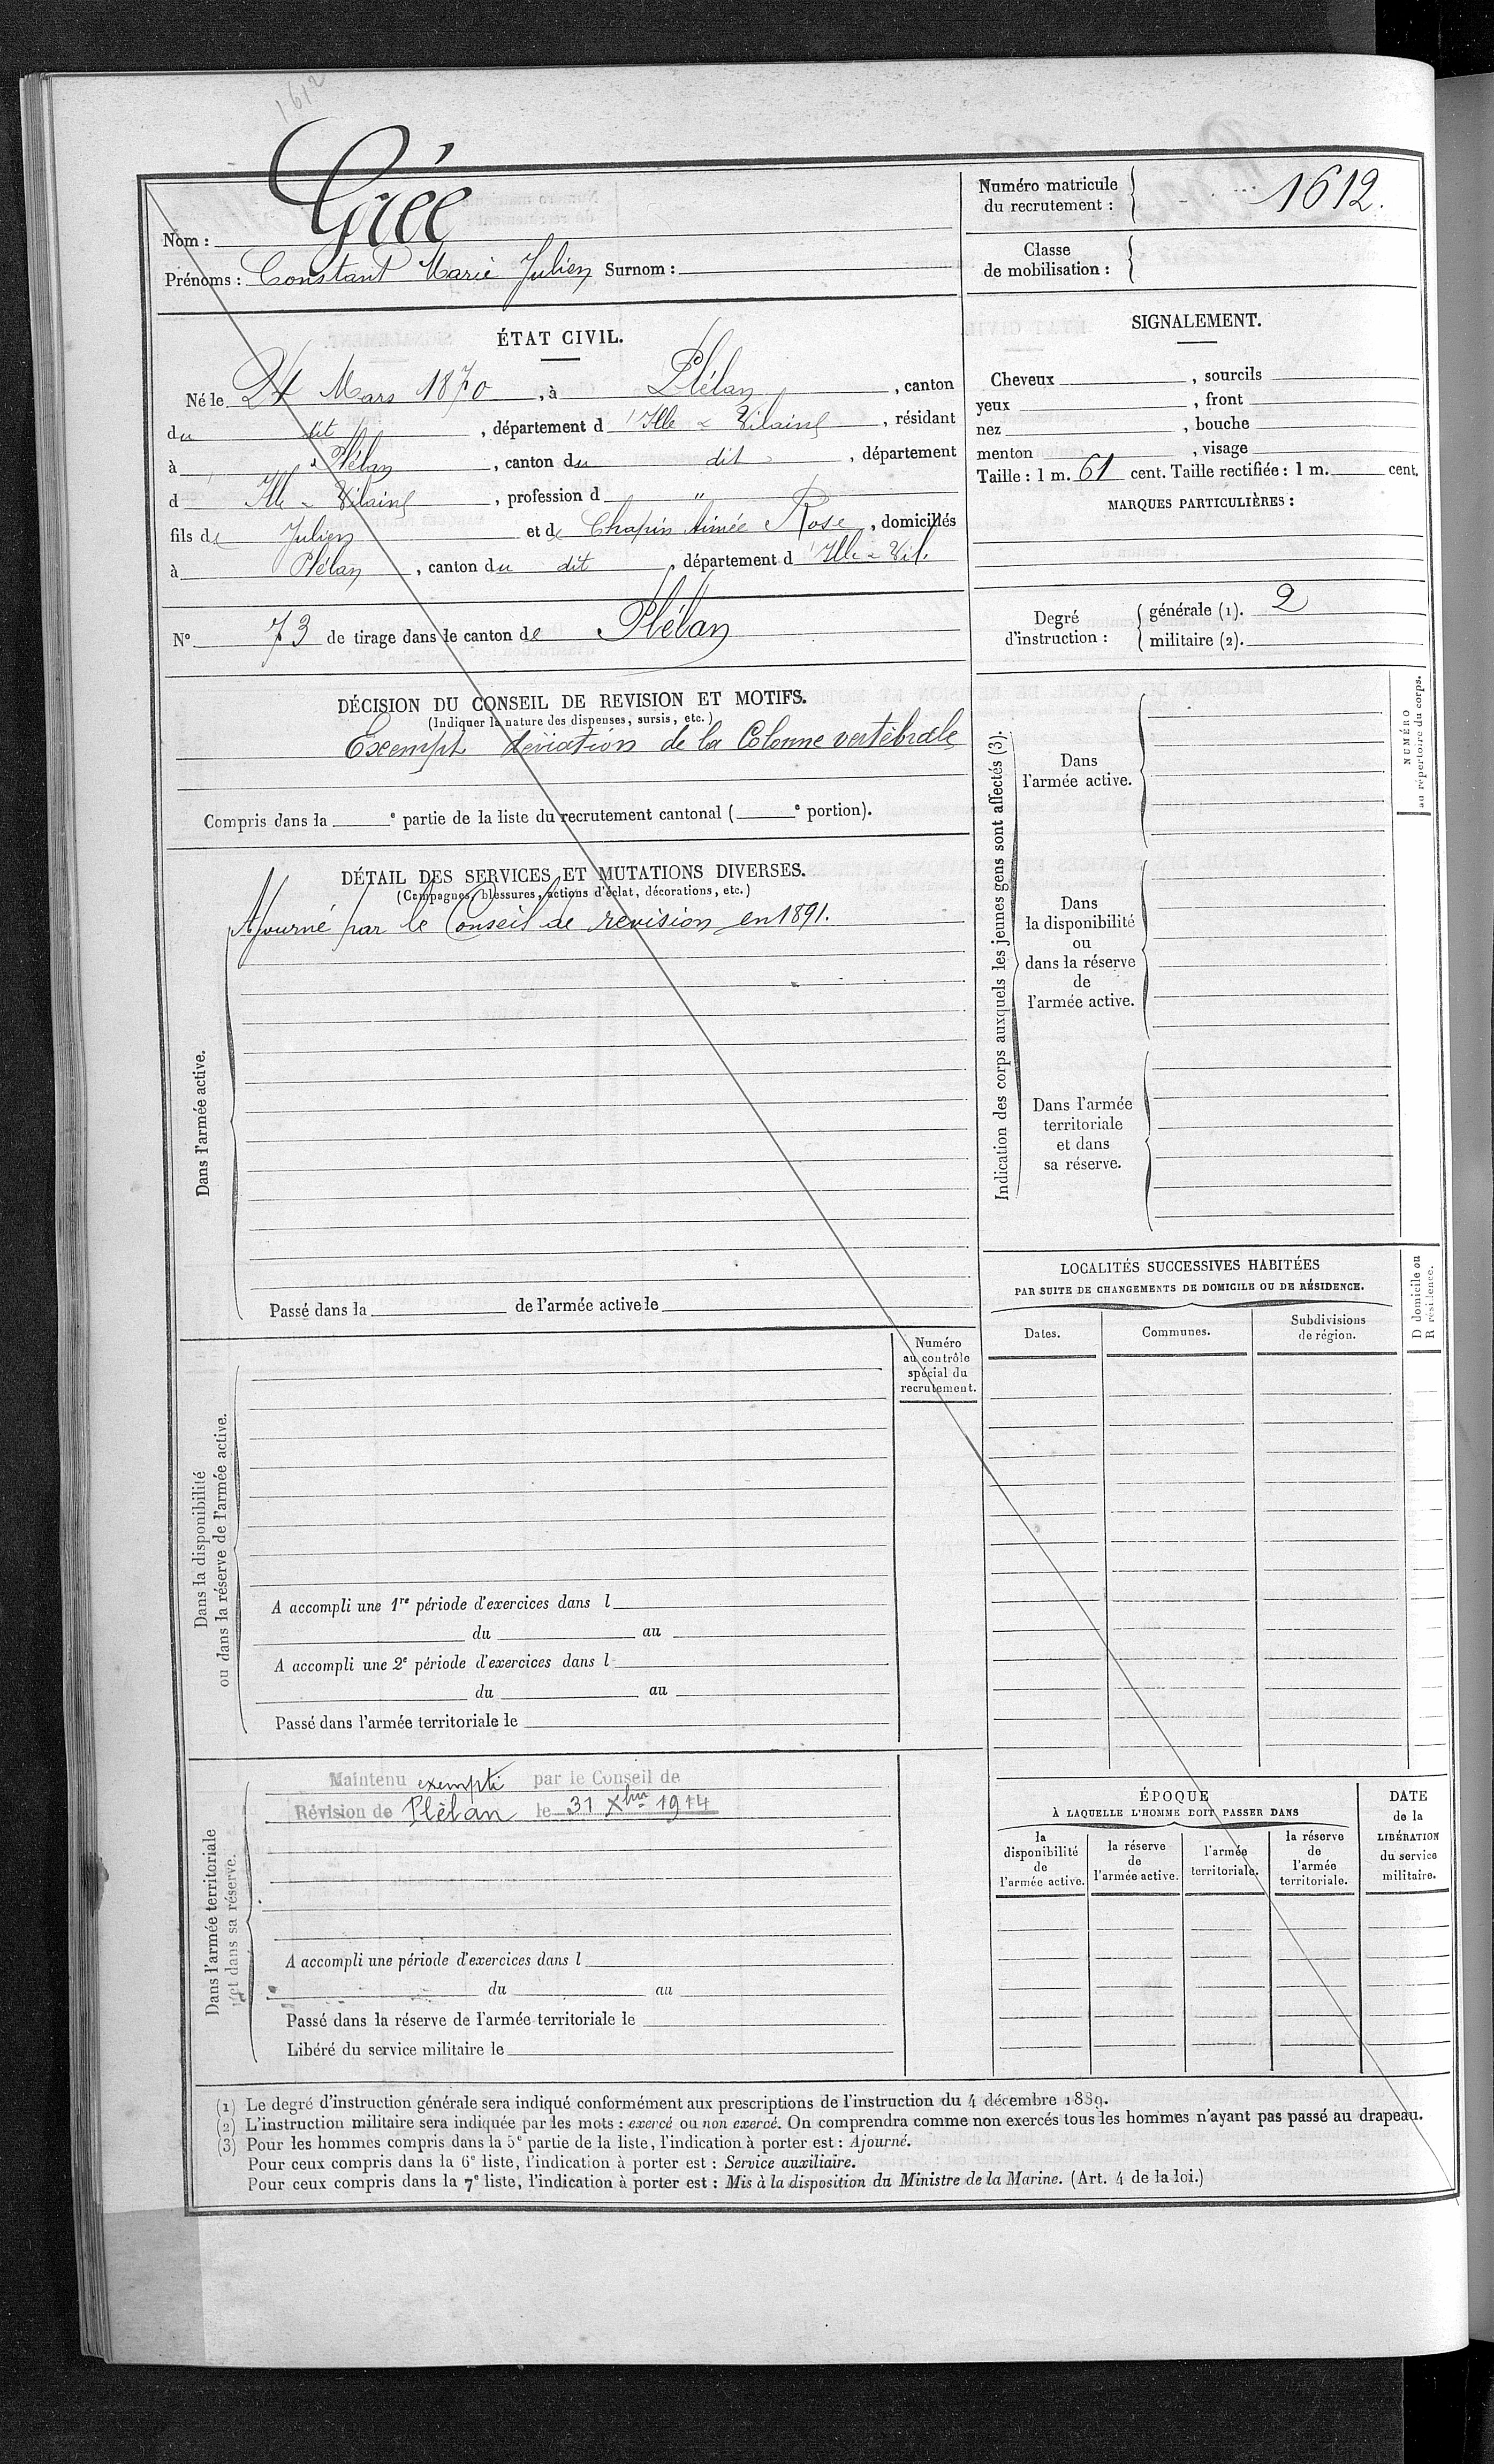 1612
Nom : Grée
Prénoms : Constant Marie Julien Surnom :
Numéro matricule
du recrutement : 1612.
Classe
de mobilisation :
ÉTAT CIVIL.
Né le 24 Mars 1870, à Plélan, canton
du dit, département d'Ille & Vilaine, résidant
à Plélan, canton du dit, département
d Ille & Vilaine, profession d "
fils de Julien et de Chapin Aimée Rose, domicillés
à Plélan, canton du dit, département d'Ille & Vil.
N° 73 de tirage dans le canton de Plélan
SIGNALEMENT.
Cheveux , sourcils
yeux , front
nez , bouche
menton , visage
Taille : 1 m. 61 cent. Taille rectifiée : 1 m. cent.
MARQUES PARTICULIÈRES :
Degré
d'instruction :
générale (1). 2
militaire (2).
DÉCISION DU CONSEIL DE REVISION ET MOTIFS.
(Indiquer la nature des dispenses, sursis, etc.)
Exempt déviation de la Colonne vertébrale
Compris dans la e partie de la liste du recrutement cantonal ( e portion).
DÉTAIL DES SERVICES ET MUTATIONS DIVERSES.
(Campagnes, blessures, actions d'éclat, décorations, etc.)
Ajourné par le Conseil de revision en 1891.
Dans l'armée active.
Passé dans la de l'armée active le
Indication des corps auxquels les jeunes gens sont affectés (3).
Dans
l'armée active.
Dans
la disponibilité
ou
dans la réserve
de
l'armée active.
Dans l'armée
territoriale
et dans
sa réserve.
NUMÉRO
au répertoire du corps.
LOCALITÉS SUCCESSIVES HABITÉES
PAR SUITE DE CHANGEMENTS DE DOMICILE OU DE RÉSIDENCE.
Dates.
Communes.
Subdivisions
de région.
D domicile ou
R résidence.
Numéro
au contrôle
spécial du
recrutement.
Dans la disponibilité
ou dans la réserve de l'armée active.
A accompli une 1re période d'exercices dans l
du au
A accompli une 2e période d'exercices dans l
du au
Passé dans l'armée territoriale le
Dans l'armée territoriale
et dans sa réserve.
Maintenu exempti par le Conseil de
Révision de Plélan le 31 Xbre 1914
A accompli une période d'exercices dans l
du au
Passé dans la réserve de l'armée territoriale le
Libéré du service militaire le
ÉPOQUE
À LAQUELLE L'HOMME DOIT PASSER DANS
la
disponibilité
de
l'armée active.
la réserve
de
l'armée active.
l'armée
territoriale.
la réserve
de
l'armée
territoriale.
DATE
de la
LIBÉRATION
du service
militaire.
(1) Le degré d'instruction générale sera indiqué conformément aux prescriptions de l'instruction du 4 décembre 1889.
(2) L'instruction militaire sera indiquée par les mots : exercé ou non exercé. On comprendra comme non exercés tous les hommes n'ayant pas passé au drapeau.
(3) Pour les hommes compris dans la 5e partie de la liste, l'indication à porter est : Ajourné.
Pour ceux compris dans la 6e liste, l'indication à porter est : Service auxiliaire.
Pour ceux compris dans la 7e liste, l'indication à porter est : Mis à la disposition du Ministre de la Marine. (Art. 4 de la loi.)